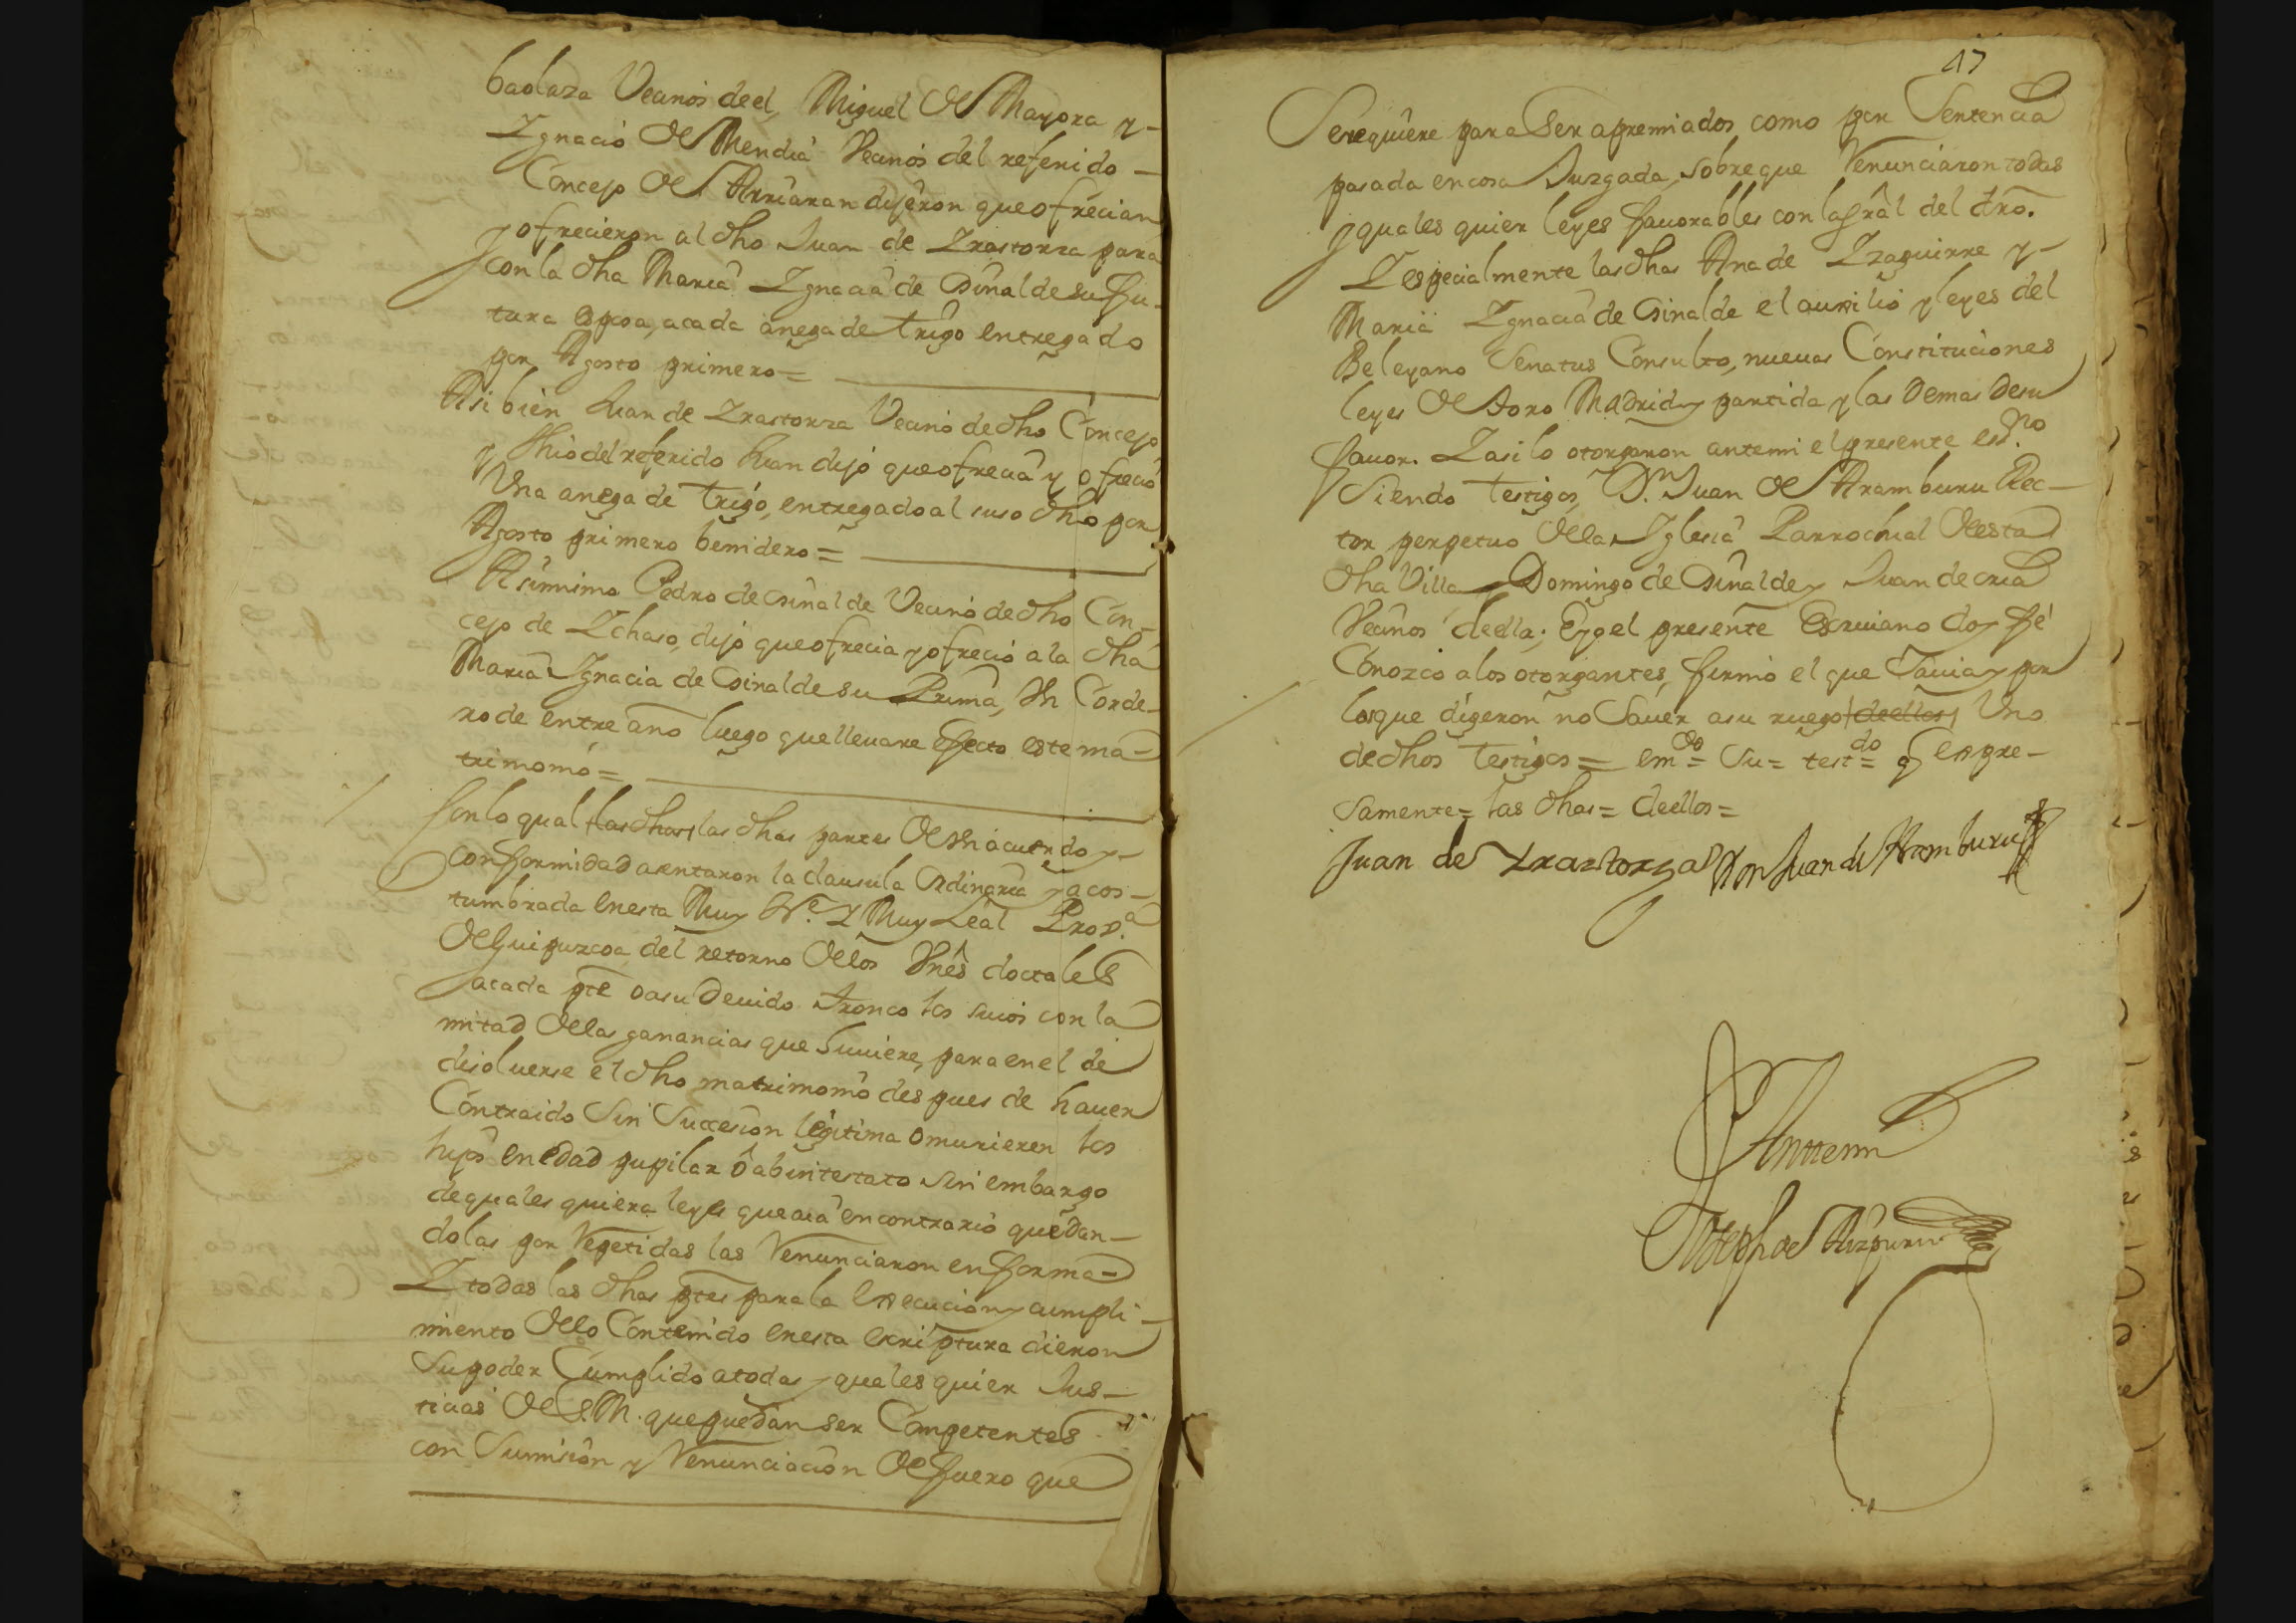 baolaza Vecinos de el, Miguel de Mayora y
Ignacio de Mendia Vecinos del referido
Concejo de Arriaran dijeron que ofrecian
y ofrecieron al dho Juan de Yrastorza para
con la dha Maria Ignacia de Osinalde su fu-
tura esposa, a cada anega de trigo entregado
por Agosto primero =
Asi bien Juan de Yrastorza Vecino de dho Concejo
y thio del referido Juan dijo que ofrecia y ofrecio
Una anega de trigo, entregado al suso dho por
Agosto primero benidero =
Asimismo Pedro de Osinalde Vecino de dho Con-
cejo de Ychaso, dijo que ofrecia y ofrecio a la dha
Maria Ignacia de Osinalde su Prima, Un Corde-
ro de entre año luego que lleuare efecto este ma-
trimonio =
Con lo qual las dhas las dhas partes de Un acuerdo y
conformidad asentaron la clausula ordinaria y acos-
tumbrada en esta Muy Ne. Y Muy Leal Prov.a
de Guipuzcoa, del retorno de los Vnes doctales
a cada pte o a su deuido tronco los suios con la
mitad de las ganancias que huuiere, para en el de
disoluerse el dho matrimonio despues de hauer
Contraido Sin Succesion legitima o murieren los
hijos en edad pupilar o abintestato sin embargo
de quales quiera leyes que aia en contrario que dan-
dolas por repetidas las renunciaron en forma
Y todas las dhas ptes para la execucion y cumpli-
miento de lo Contenido en esta escriptura dieron
Su poder Cumplido a todas y quales quier Jus-
ticias de S. M. que puedan ser Competentes
con Sumision y renunciacion de fuero que
47
Se requiere para Ser apremiados como por Sentencia
pasada en cosa Juzgada, sobre que renunciaron todas
y quales quier leyes fauorables con la gral del dro.
Y especialmente las dhas Ana de Yzaguirre y
Maria Ignacia de Osinalde el auxilio y leyes del
Beleyano Senatus Consulto, nueuas Constituciones
leyes de toro Madrid y partida y las demas de su
fauor. Y asi lo otorgaron ante mi el presente ess.no
Siendo testigos, Dn. Juan de Aramburu Rec-
tor perpetuo de la Iglesia Parrochial de esta
dha Villa, Domingo de Osinalde y Juan de oria
Vecinos de ella; E yo el presente Escriuano doy fe
Conozco a los otorgantes, firmo el que Sauia y por
los que digeron no Sauer a su ruego de ellos Uno
de dhos testigos = em.do = Su = test.do = y expre-
samente = las dhas = de ellos =
Juan de Yrastorza Don Juan de Aramburu
Ante mi
Joseph de Aizpuru